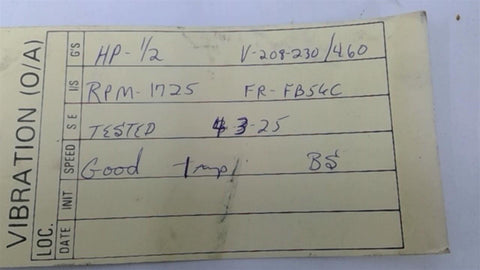 VIBRATION (O/A)
LOC. DATE INIT SPEED S E I/S G'S
HP- 1/2 V-208-230/460
RPM-1725 FR-FB56C
TESTED 3-25
Good BS